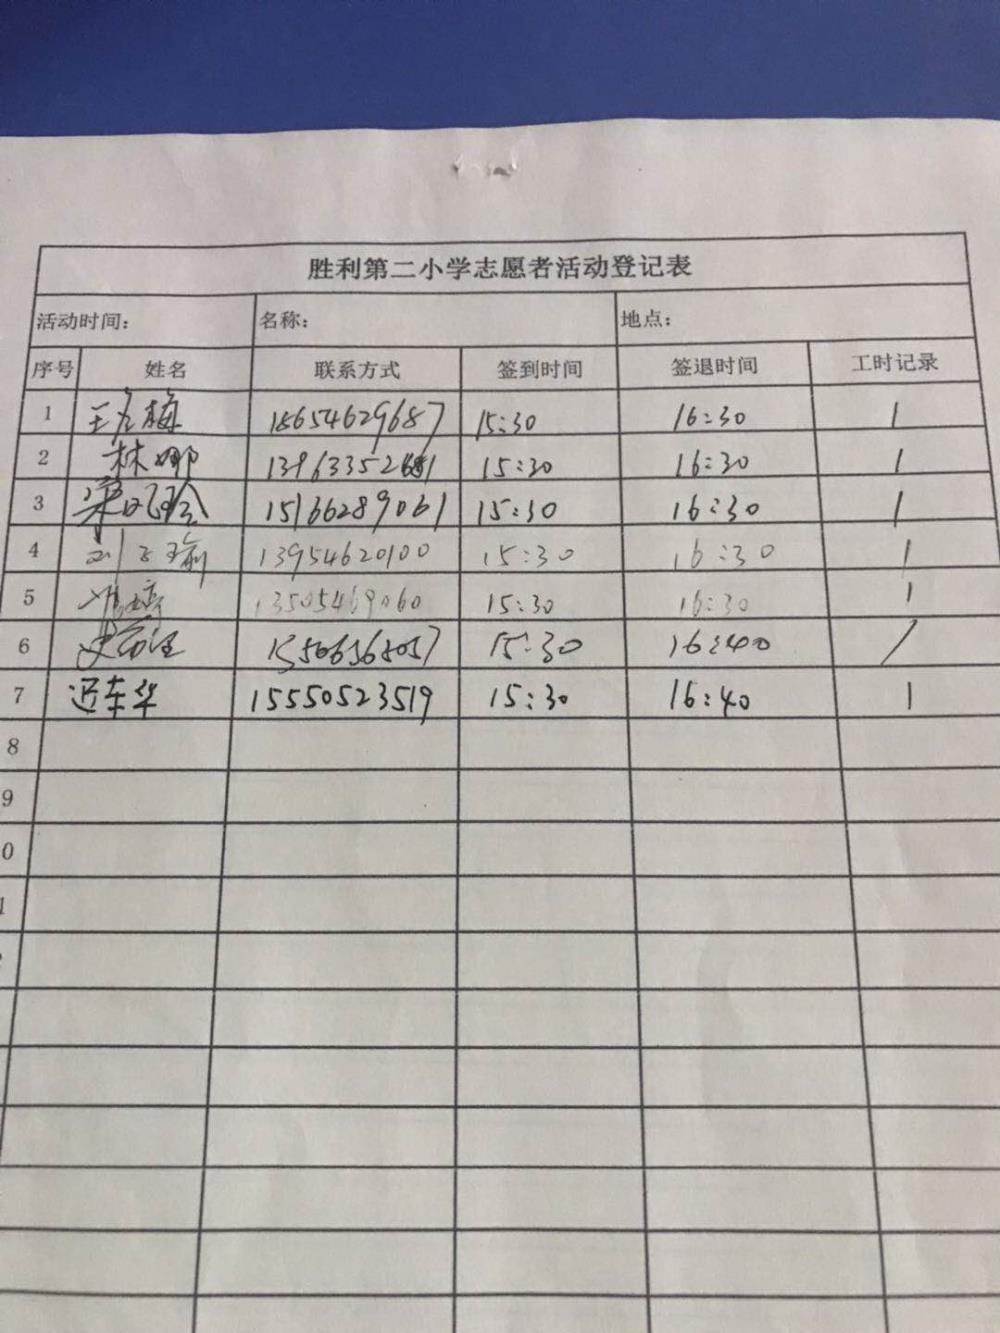 胜利第二小学志愿者活动登记表
活动时间： 名称： 地点：
序号 姓名 联系方式 签到时间 签退时间 工时记录
1 18654629687 15:30 16:30 1
2 林娜 15:30 16:30 1
3 15166289061 15:30 16:30 1
4 13954620100 15:30 16:30 1
5 13505469060 15:30 16:30 1
6 15:30 16:40 /
7 迟东华 15550523519 15:30 16:40 1
8
9
0
1